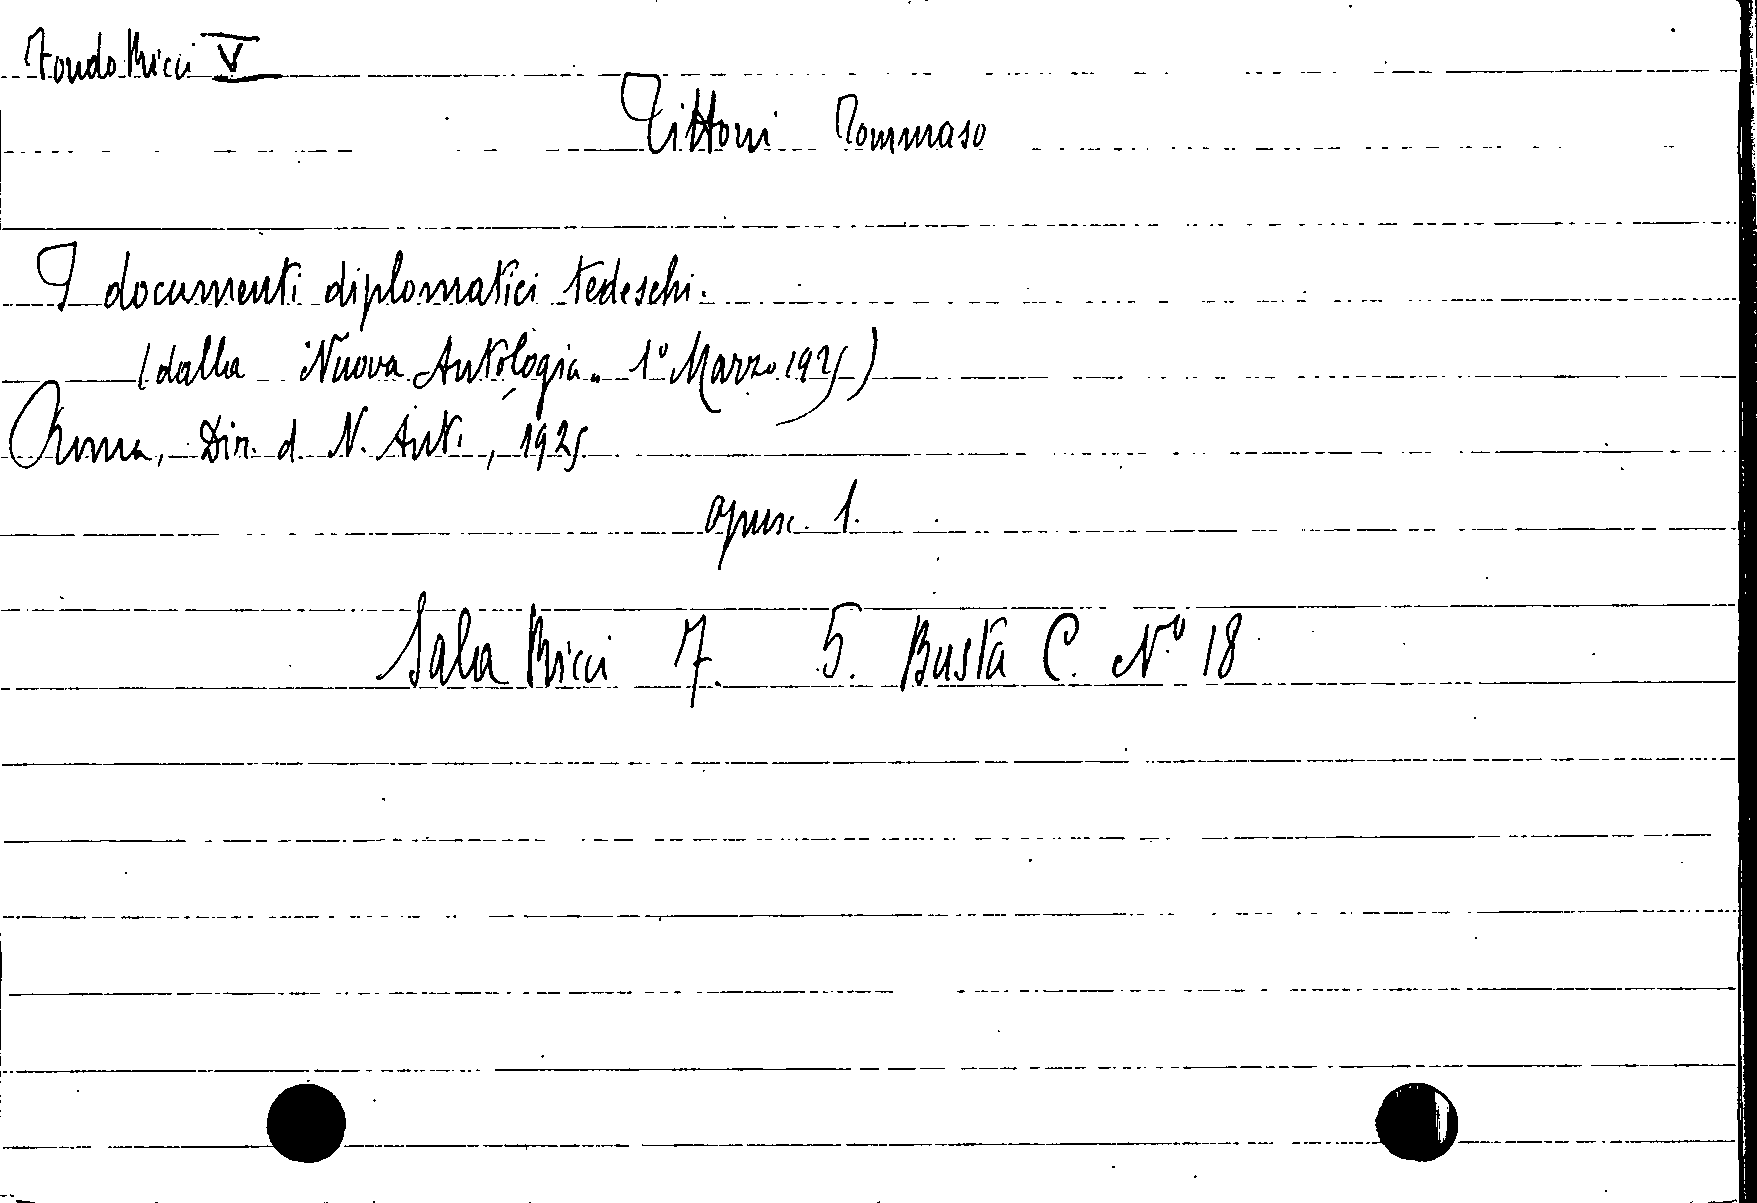 Fondo Ricci V
Tittoni Tommaso
I documenti diplomatici tedeschi.
(dalla "Nuova Antologia" 1° Marzo 1925)
Roma, Dir. d. N. Ant., 1925.
opusc. 1.
Sala Ricci 7. 5. Busta C. N.° 18